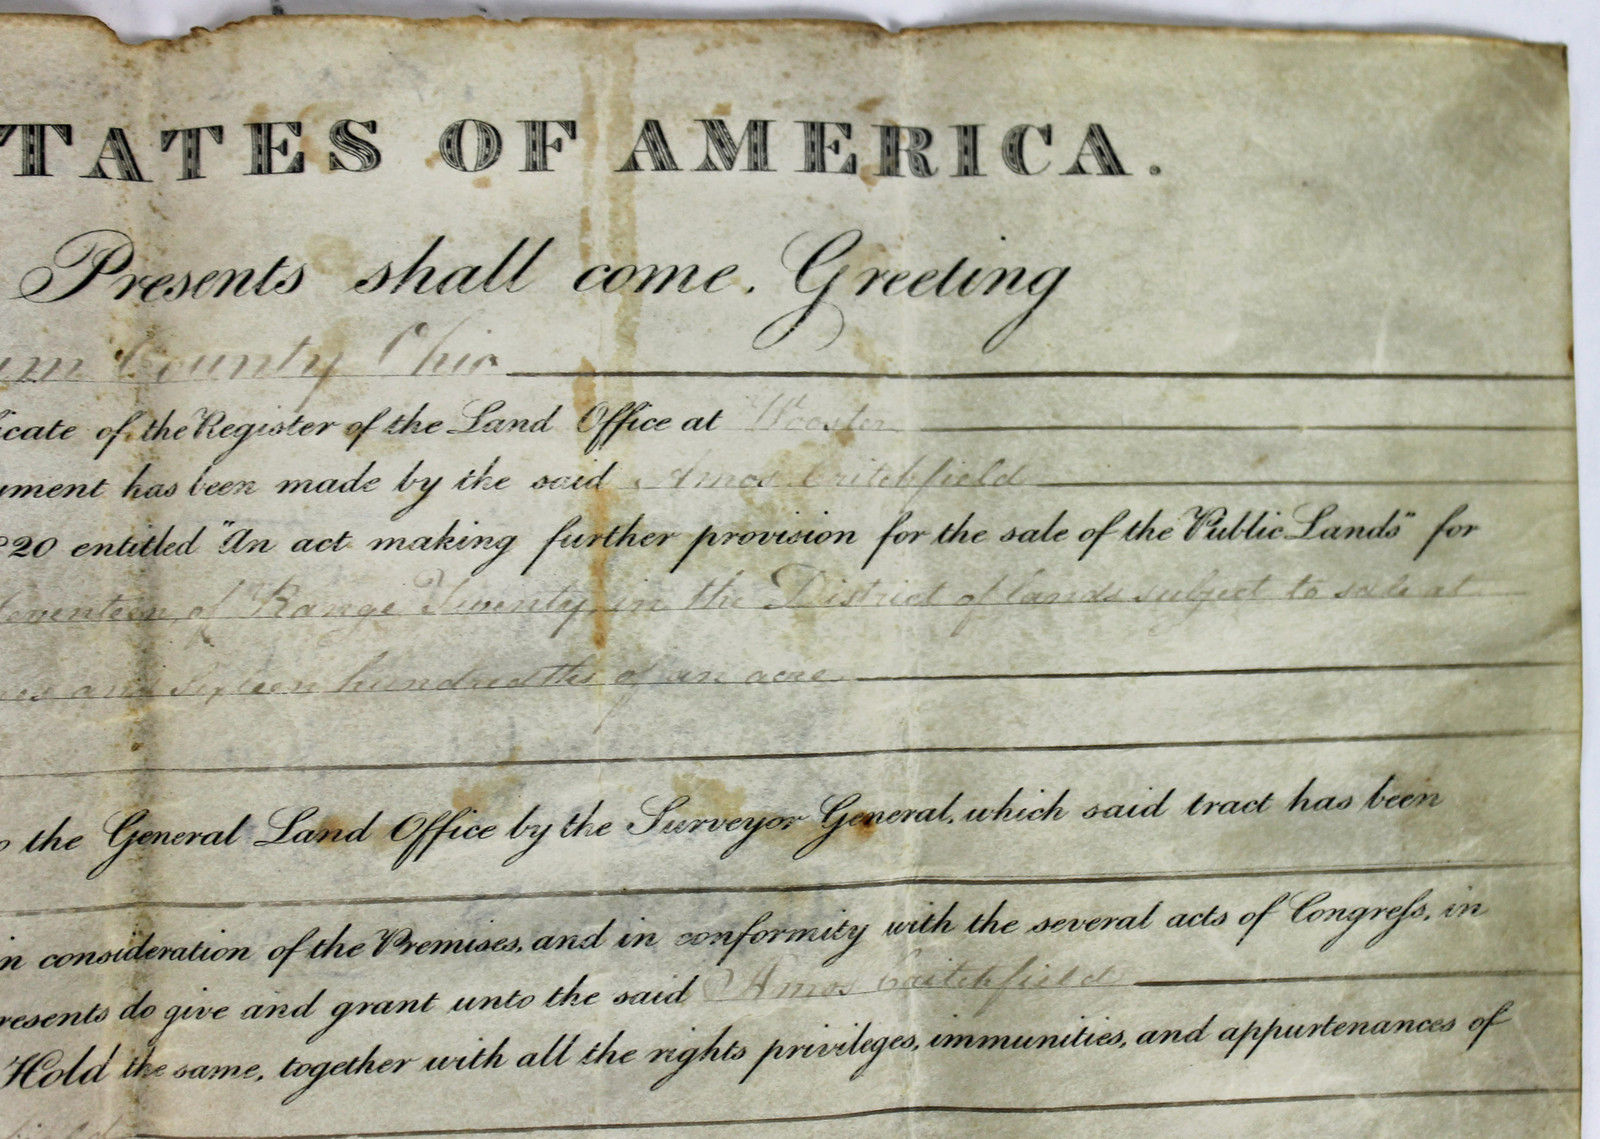 TATES OF AMERICA.
Presents shall come. Greeting
um County Ohio
icate of the Register of the Land Office at Wooster
yment has been made by the said Amos Critchfield
820 entitled "An act making further provision for the sale of the Public Lands" for
Seventeen, of Range Twenty, in the District of lands subject to sale at
res and Sixteen hundredths of an acre
o the General Land Office by the Surveyor General, which said tract has been
in consideration of the Premises, and in conformity with the several acts of Congreſs, in
resents do give and grant unto the said Amos Critchfield
Hold the same, together with all the rights privileges, immunities, and appurtenances of
field